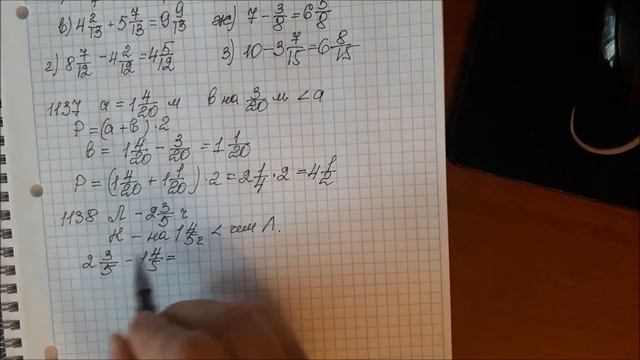 в) 4 2/13 + 5 7/13 = 9 9/13
ж) 7 - 3/8 = 6 5/8
г) 8 7/12 - 4 2/12 = 4 5/12
з) 10 - 3 7/15 = 6 8/15
1137 a = 1 4/20 м в на 3/20 м < a
P = (a + в) · 2
в = 1 4/20 - 3/20 = 1 1/20
P = (1 4/20 + 1 1/20) · 2 = 2 1/4 · 2 = 4 1/2
1138 Л - 2 3/5 ч
К - на 1 4/5 ч < чем Л.
2 3/5 - 1 4/5 =